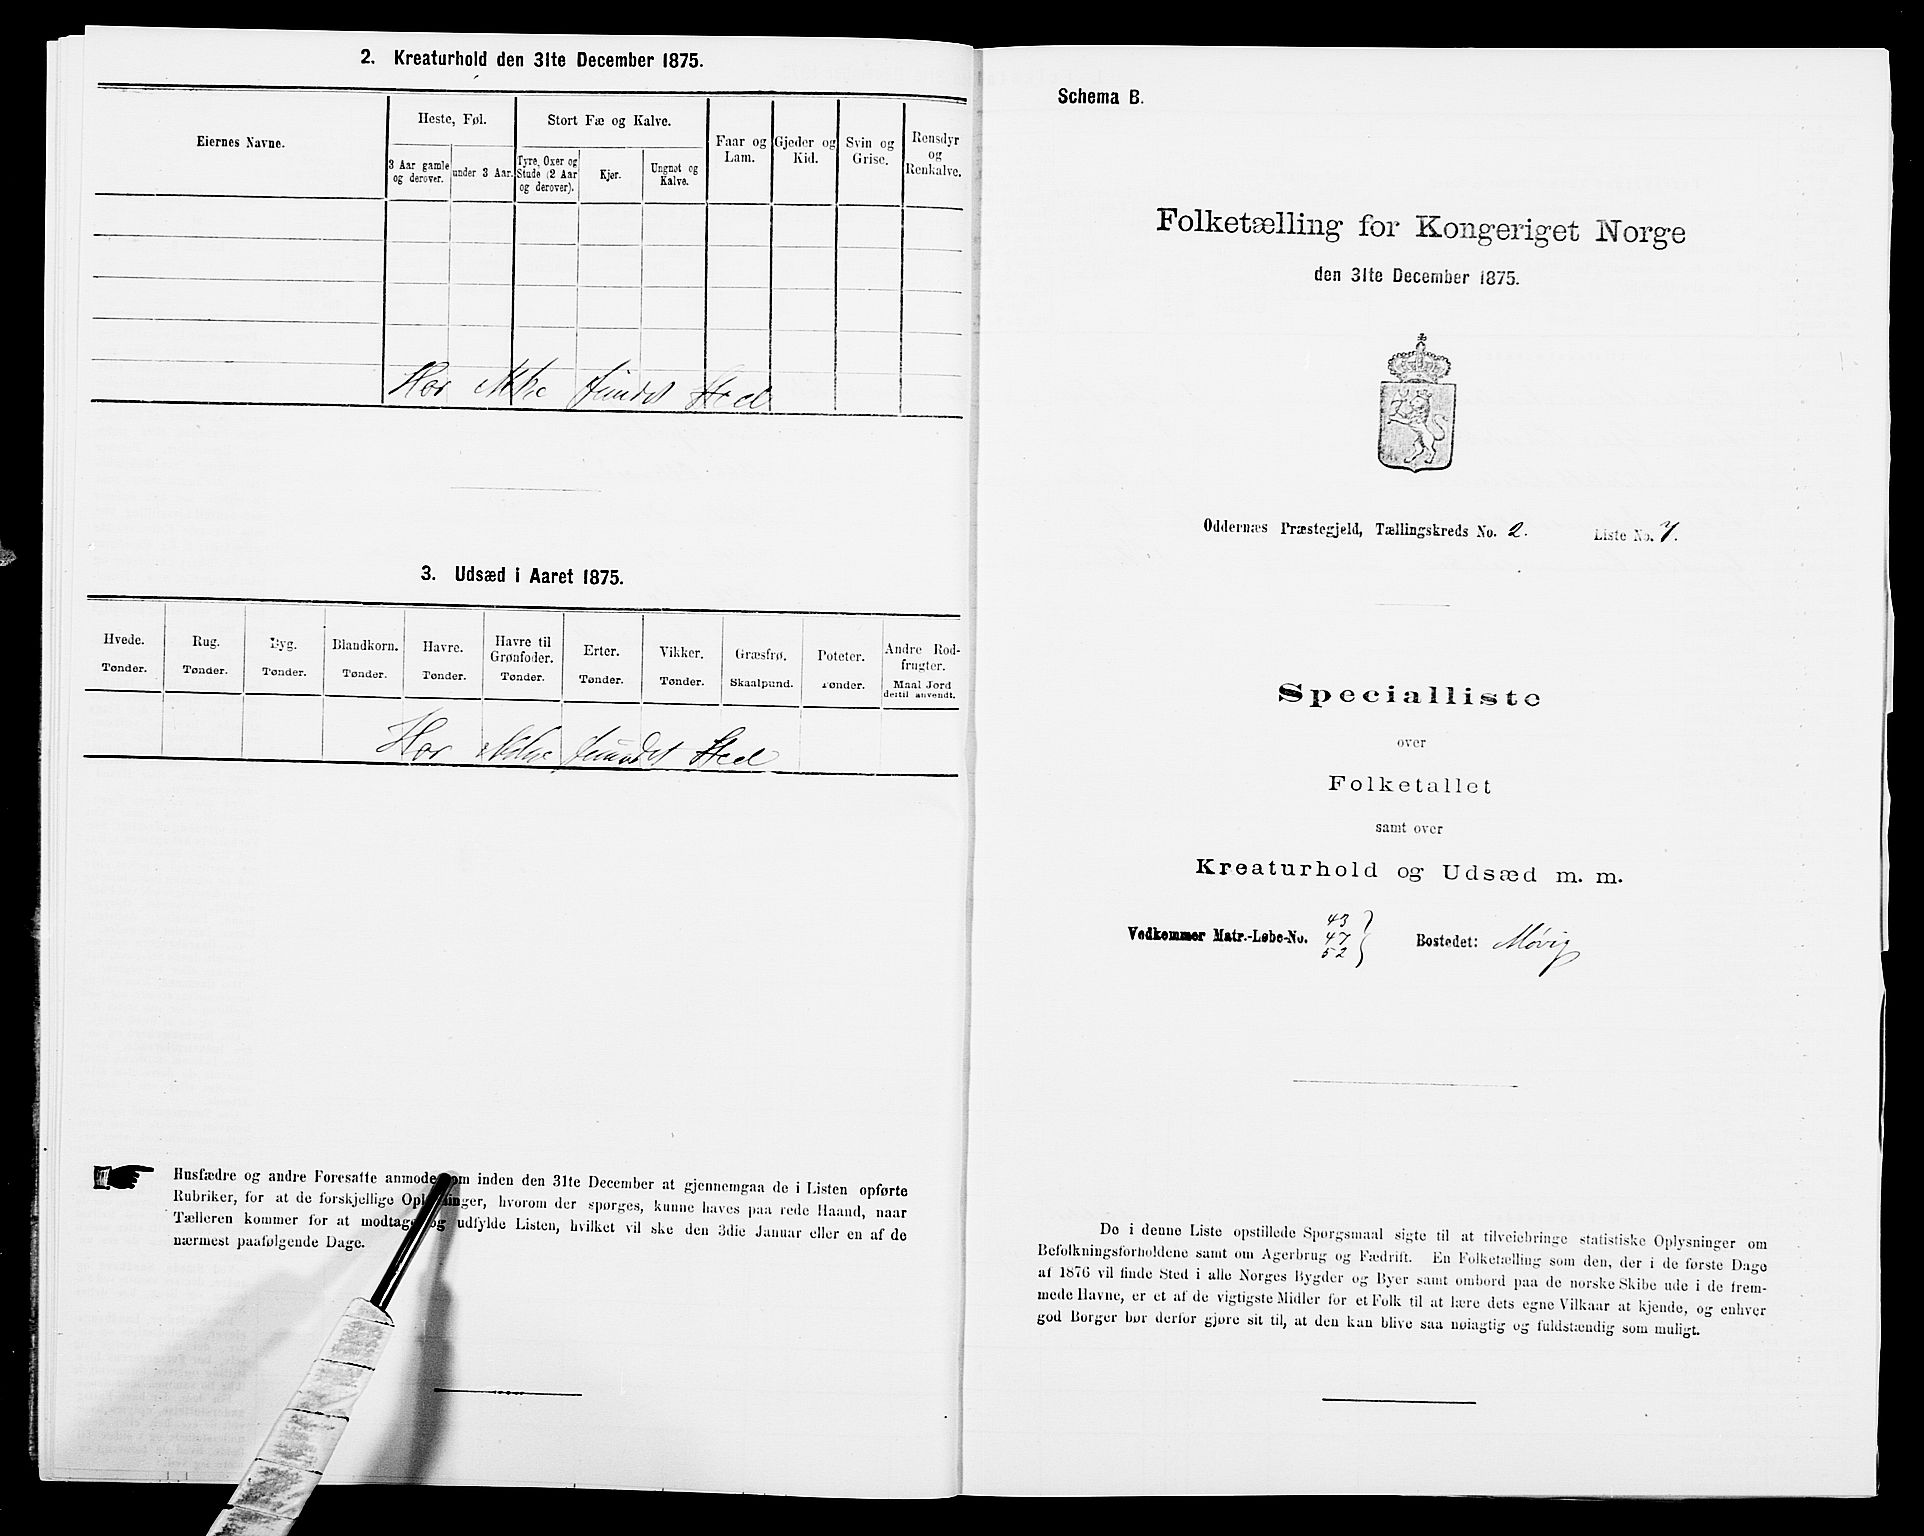 2. Kreaturhold den 31te December 1875.
Eiernes Navne.
Heste, Føl.
Stort Fæ og Kalve.
Faar og Lam.
Gjeder og Kid.
Svin og Grise.
Rensdyr og Renkalve.
3 Aar gamle og derover.
under 3 Aar.
Tyre, Oxer og Stude (2 Aar og derover).
Kjør.
Ungnøt og Kalve.
Har ikke fundet Sted
3. Udsæd i Aaret 1875.
Hvede. Tønder.
Rug. Tønder.
Byg. Tønder.
Blandkorn. Tønder.
Havre. Tønder.
Havre til Grønfoder. Tønder.
Erter. Tønder.
Vikker. Tønder.
Græsfrø. Skaalpund.
Poteter. Tønder.
Andre Rodfrugter. Maal Jord dertil anvendt.
Har ikke fundet Sted
Husfædre og andre Foresatte anmodes om inden den 31te December at gjennemgaa de i Listen opførte
Rubriker, for at de forskjellige Oplysninger, hvorom der spørges, kunne haves paa rede Haand, naar
Tælleren kommer for at modtage og udfylde Listen, hvilket vil ske den 3die Januar eller en af de
nærmest paafølgende Dage.
Schema B.
Folketælling for Kongeriget Norge
den 31te December 1875.
Oddernæs Præstegjeld, Tællingskreds No. 2. Liste No. 7.
Specialliste
over
Folketallet
samt over
Kreaturhold og Udsæd m. m.
Vedkommer Matr.-Løbe-No. 43 47 52 } Bostedet: Møvig
De i denne Liste opstillede Spørgsmaal sigte til at tilveiebringe statistiske Oplysninger om
Befolkningsforholdene samt om Agerbrug og Fædrift. En Folketælling som den, der i de første Dage
af 1876 vil finde Sted i alle Norges Bygder og Byer samt ombord paa de norske Skibe ude i de frem-
mede Havne, er et af de vigtigste Midler for et Folk til at lære dets egne Vilkaar at kjende, og enhver
god Borger bør derfor gjøre sit til, at den kan blive saa nøiagtig og fuldstændig som muligt.